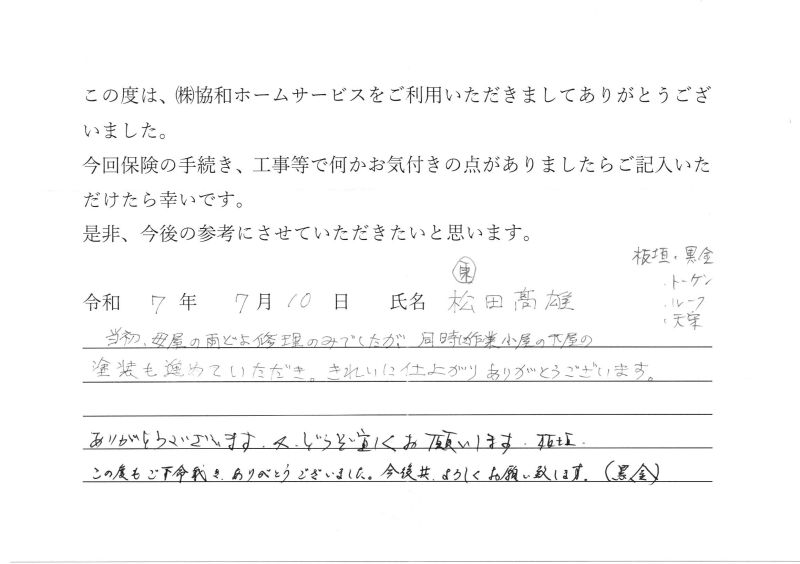 この度は、㈱協和ホームサービスをご利用いただきましてありがとうござ
いました。
今回保険の手続き、工事等で何かお気付きの点がありましたらご記入いた
だけたら幸いです。
是非、今後の参考にさせていただきたいと思います。
板垣・黒金
・トーケン
・ルーフ
・天栄
令和 7 年 7 月 10 日 氏名 松田髙雄
当初、母屋の雨どよ修理のみでしたが、同時に作業小屋の下屋の
塗装も進めていただき。きれいに仕上がりありがとうございます。
ありがとうございます。又、どうぞ宜しくお願いします。板垣.
この度もご下命戴き、ありがとうございました。今後共、よろしくお願い致します。(黒金)